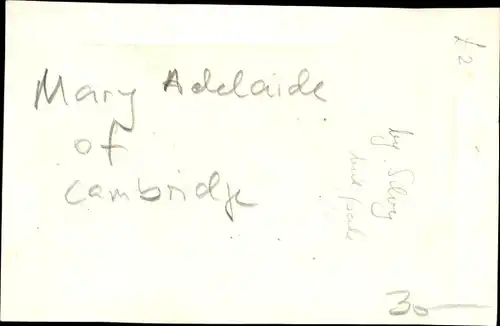 £2
Mary Adelaide
of
Cambridge
by Silvy
but pale
30